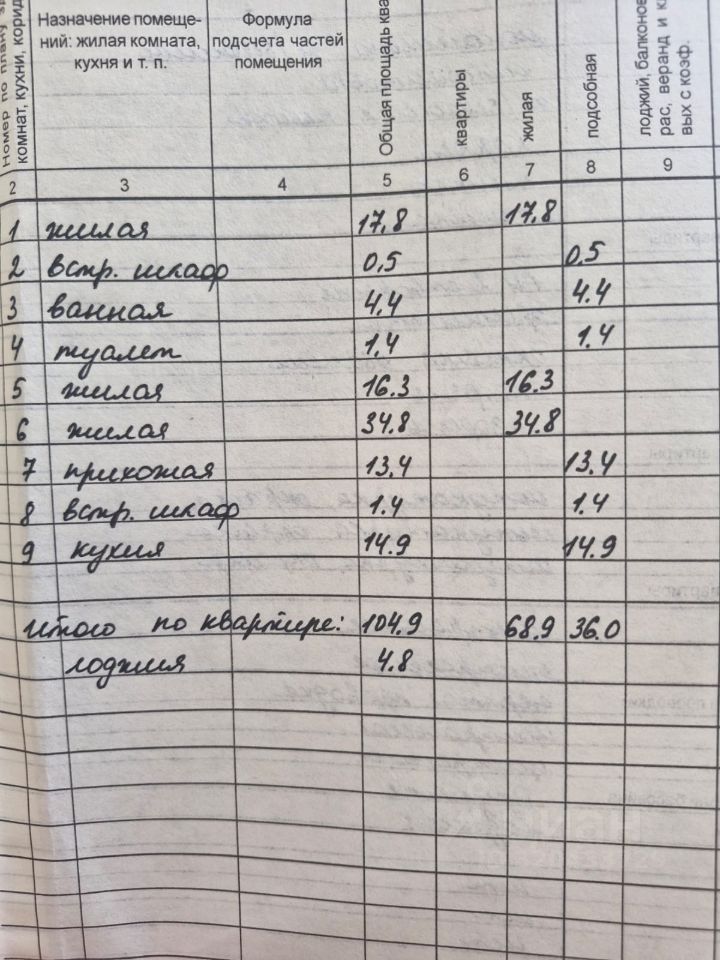 Номер по плану
комнат, кухни, корид
Назначение помеще-
ний: жилая комната,
кухня и т. п.
Формула
подсчета частей
помещения
Общая площадь ква
квартиры
жилая
подсобная
лоджий, балконов
рас, веранд и к
вых с коэф.
2 3 4 5 6 7 8 9
1 жилая 17,8 17,8
2 встр. шкаф 0,5 0,5
3 ванная 4.4 4.4
4 туалет 1,4 1.4
5 жилая 16.3 16.3
6 жилая 34.8 34.8
7 прихожая 13.4 13.4
8 встр. шкаф 1.4 1.4
9 кухия 14.9 14.9
итого по квартире: 104.9 68.9 36.0
лоджия 4.8